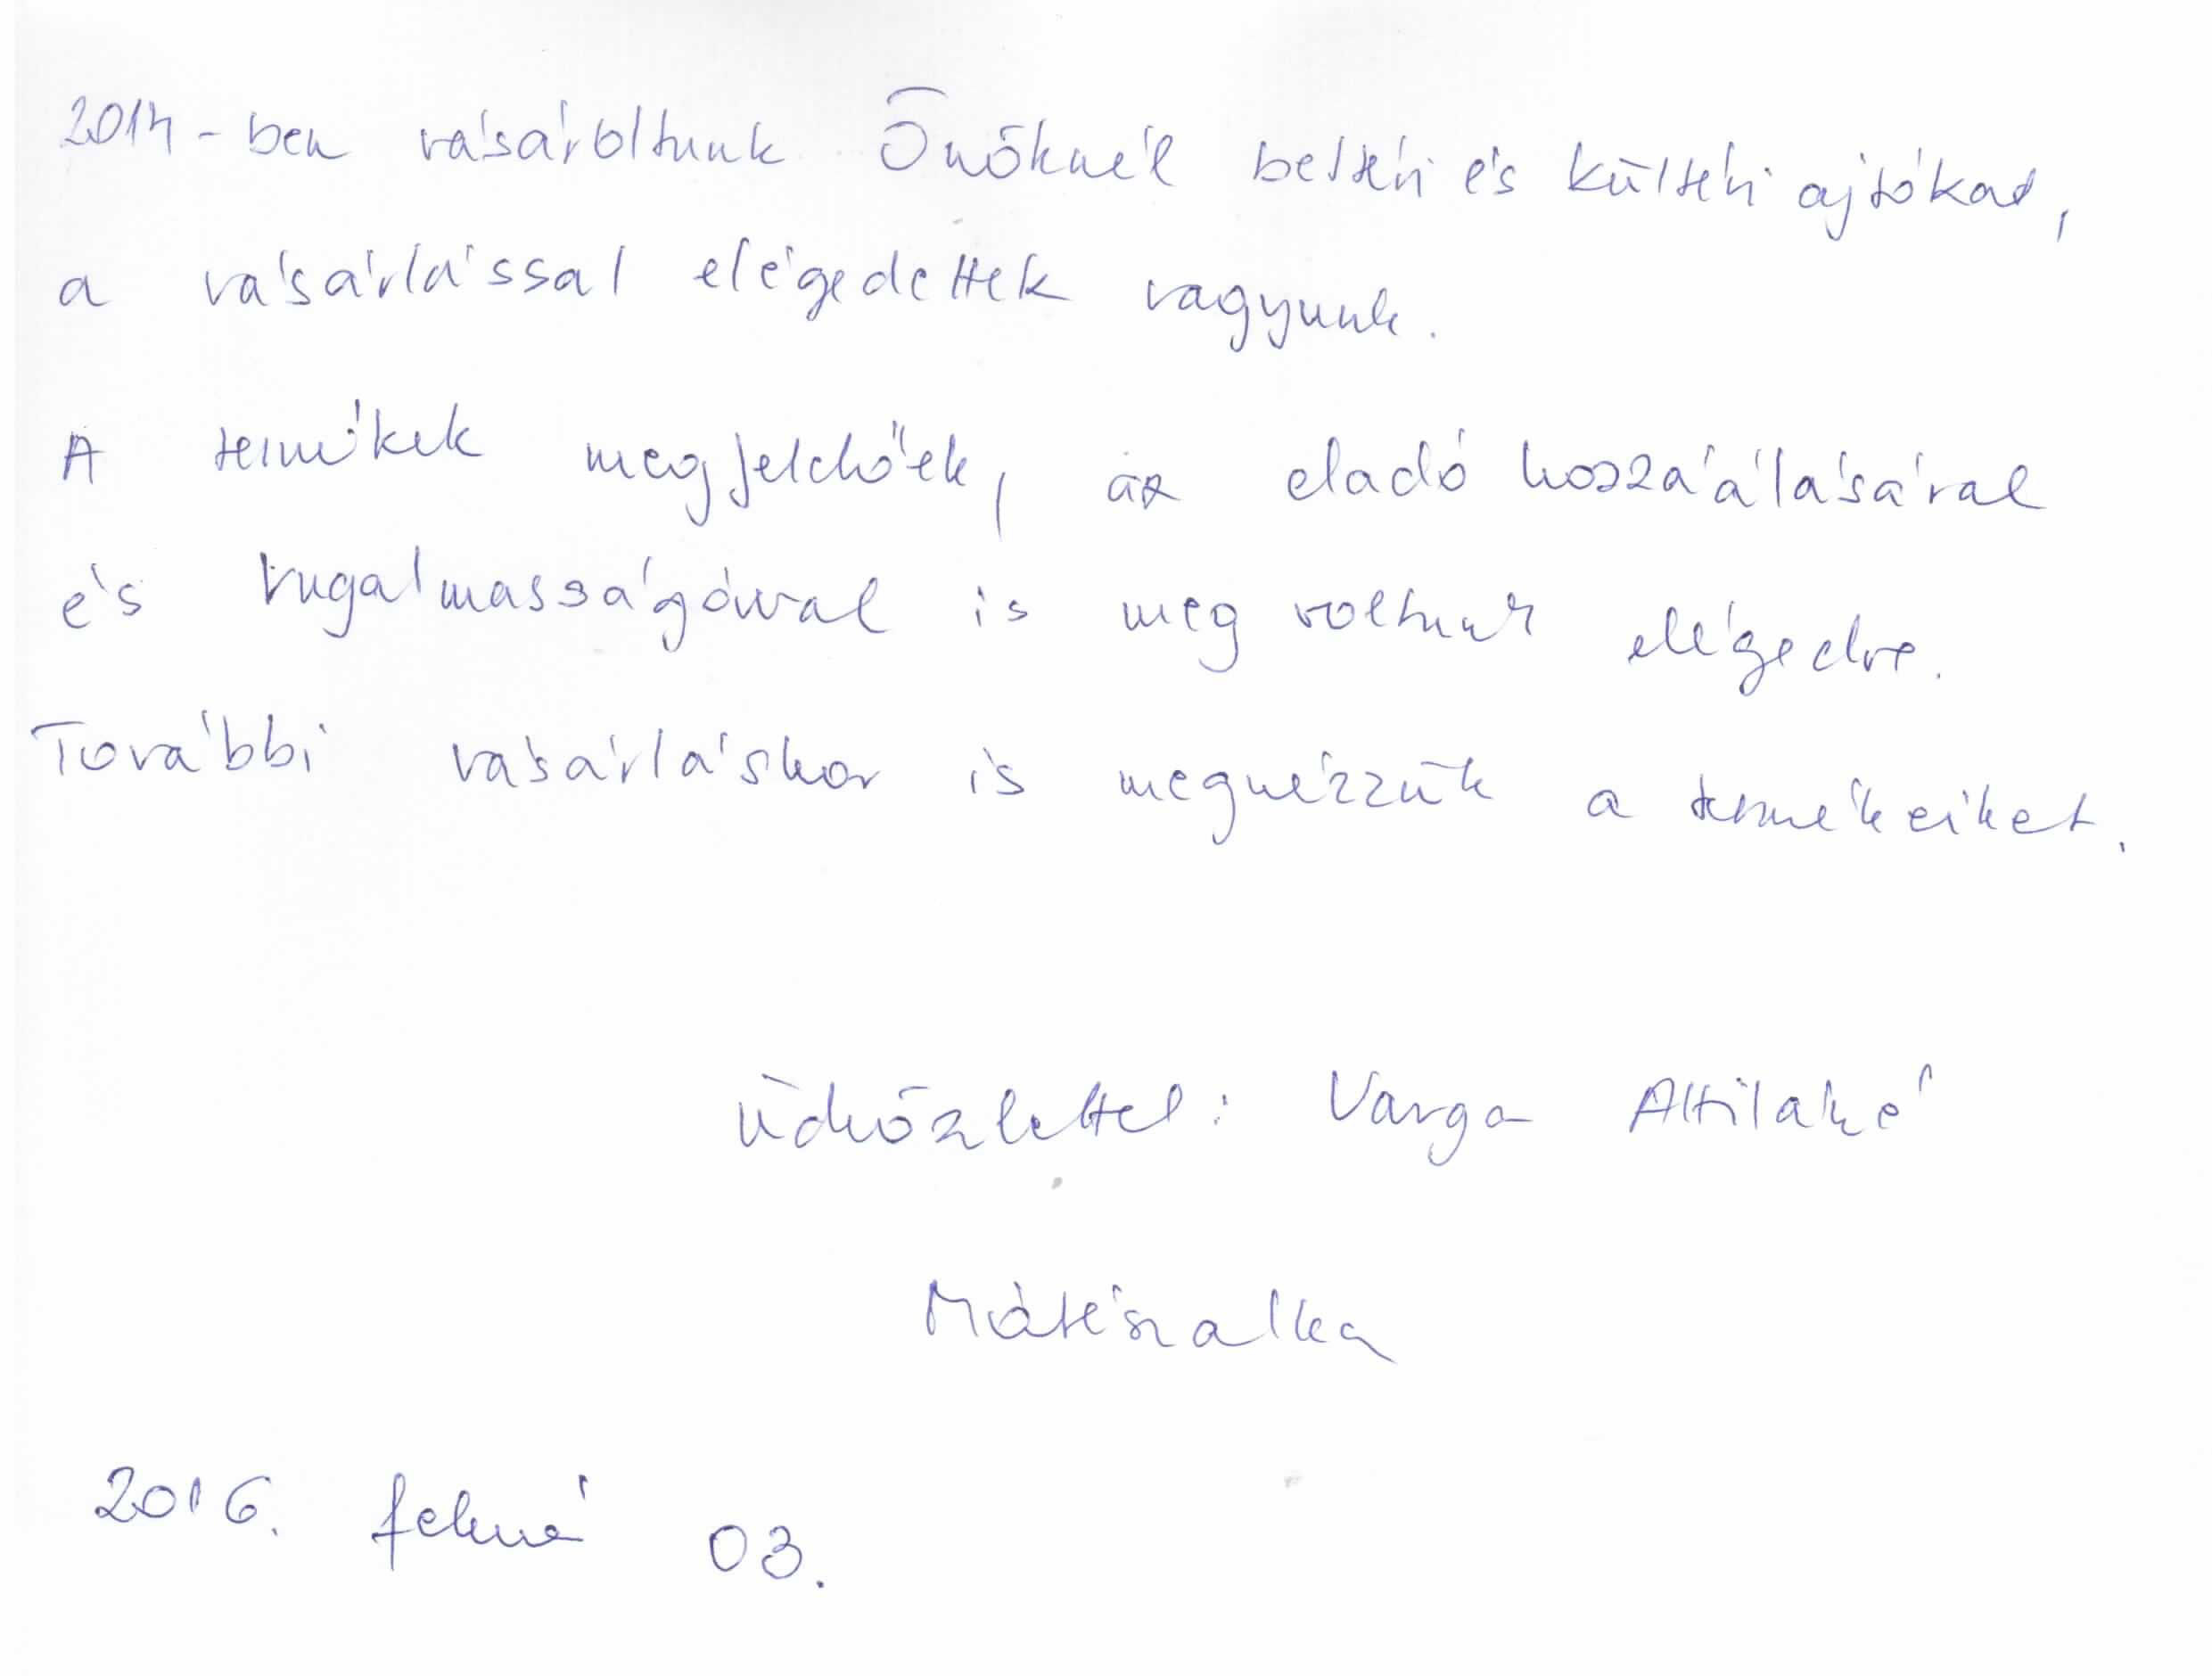 2014-ben vásároltunk Önöknél beltéri és kültéri ajtókat,
a vásárlással elégedettek vagyunk.
A termékek megfelelőek, az eladó hozzáálásával
és rugalmasságával is meg voltunk elégedve.
További vásárláskor is megnézzük a termékeiket.
Üdvözlettel: Varga Attiláné
Mátészalka
2016. február 03.